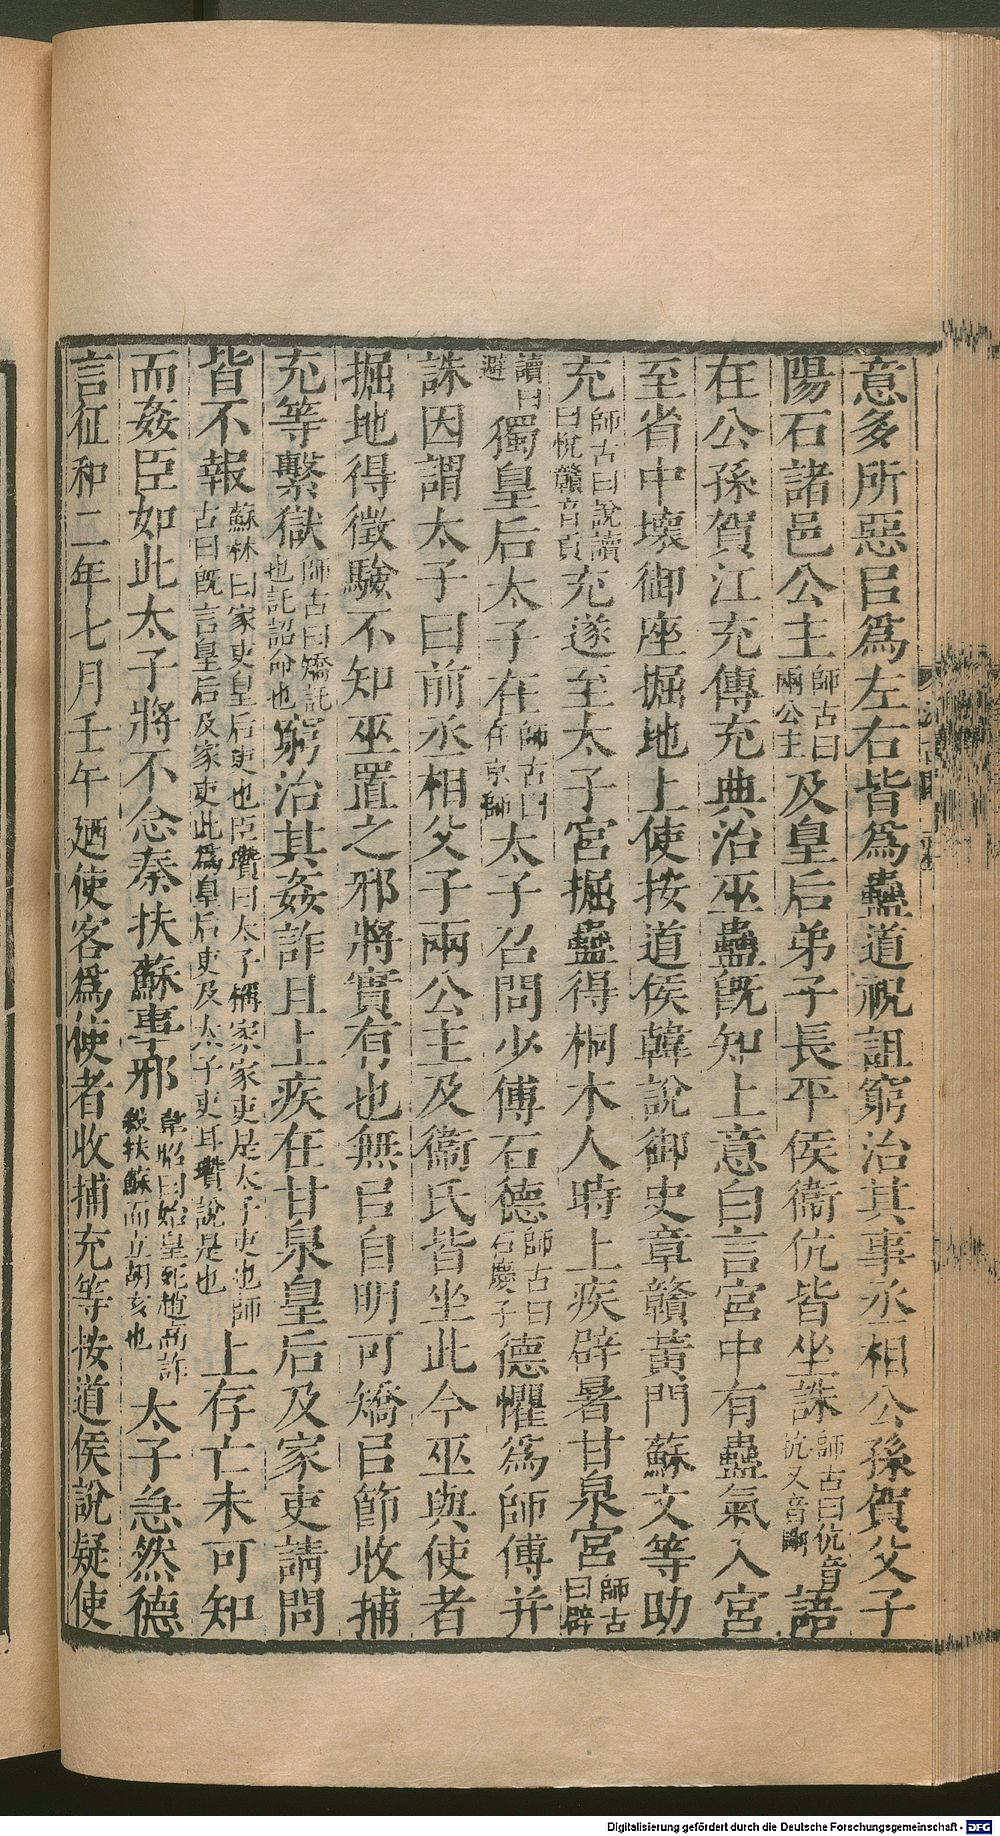 意多所惡㠯爲左右皆爲蠱道祝詛窮治其事丞相公孫賀父子
陽石諸邑公主師古曰兩公主及皇后弟子長平侯衞伉皆坐誅師古曰伉音抗又音剛語
在公孫賀江充傳充典治巫蠱旣知上意白言宮中有蠱氣入宮
至省中壞御座掘地上使按道侯韓說御史章贛黃門蘇文等助
充師古曰說讀曰悅贛音貢充遂至太子宮掘蠱得桐木人時上疾辟暑甘泉宮師古曰辟
讀曰避獨皇后太子在師古曰在京師太子召問少傅石德師古曰石慶子德懼爲師傅并
誅因謂太子曰前丞相父子兩公主及衞氏皆坐此今巫與使者
掘地得徵驗不知巫置之邪將實有也無㠯自明可矯㠯節收捕
充等繫獄師古曰矯託也託詔命也窮治其姦詐且上疾在甘泉皇后及家吏請問
皆不報蘇林曰家吏皇后吏也臣瓚曰太子稱家家吏是太子吏也師古曰旣言皇后及家吏此爲皇后吏及太子吏耳瓚說是也上存亡未可知
而姦臣如此太子將不念秦扶蘇事邪韋昭曰始皇死趙高詐殺扶蘇而立胡亥也太子急然德
言征和二年七月壬午廼使客爲使者收捕充等按道侯說疑使
Digitalisierung gefördert durch die Deutsche Forschungsgemeinschaft - DFG